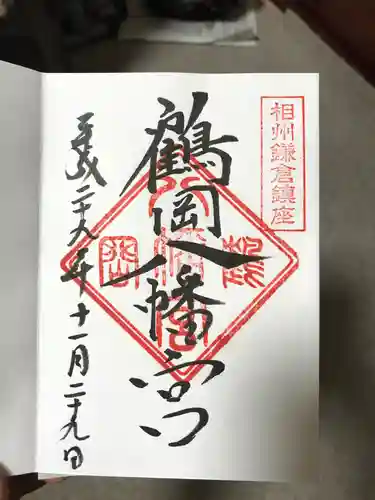 相州鎌倉鎮座
鶴岡八幡宮
平成二十九年十一月二十九日